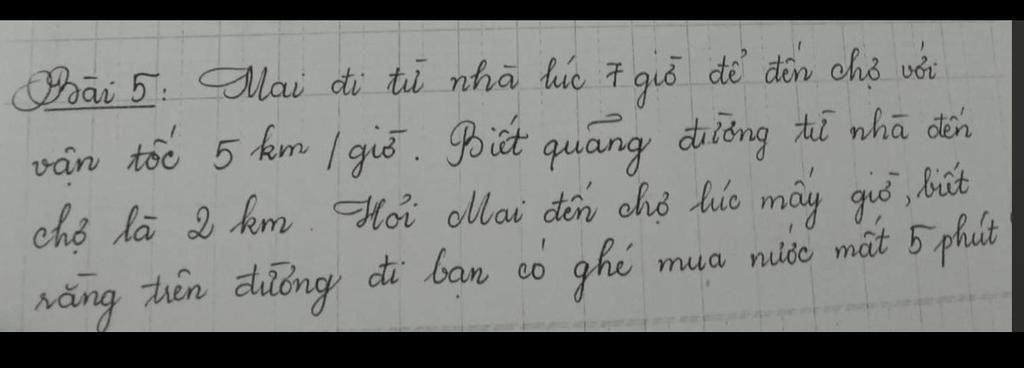 Bài 5: Mai đi từ nhà lúc 7 giờ để đến chợ với
vận tốc 5 km / giờ. Biết quãng đường từ nhà đến
chợ là 2 km. Hỏi Mai đến chợ lúc mấy giờ, biết
rằng trên đường đi bạn có ghé mua nước mất 5 phút